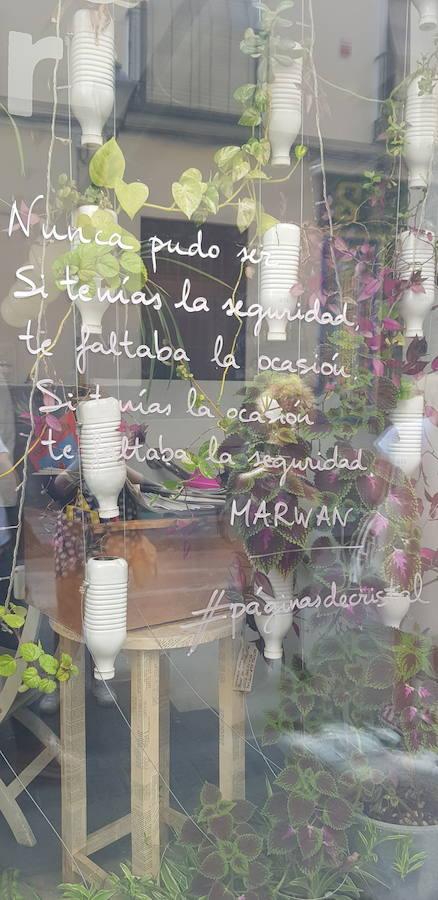 r
Nunca pudo ser
Si tenías la seguridad,
te faltaba la ocasión.
Si tenías la ocasión
te faltaba la seguridad
MARWAN
#páginasdecristal